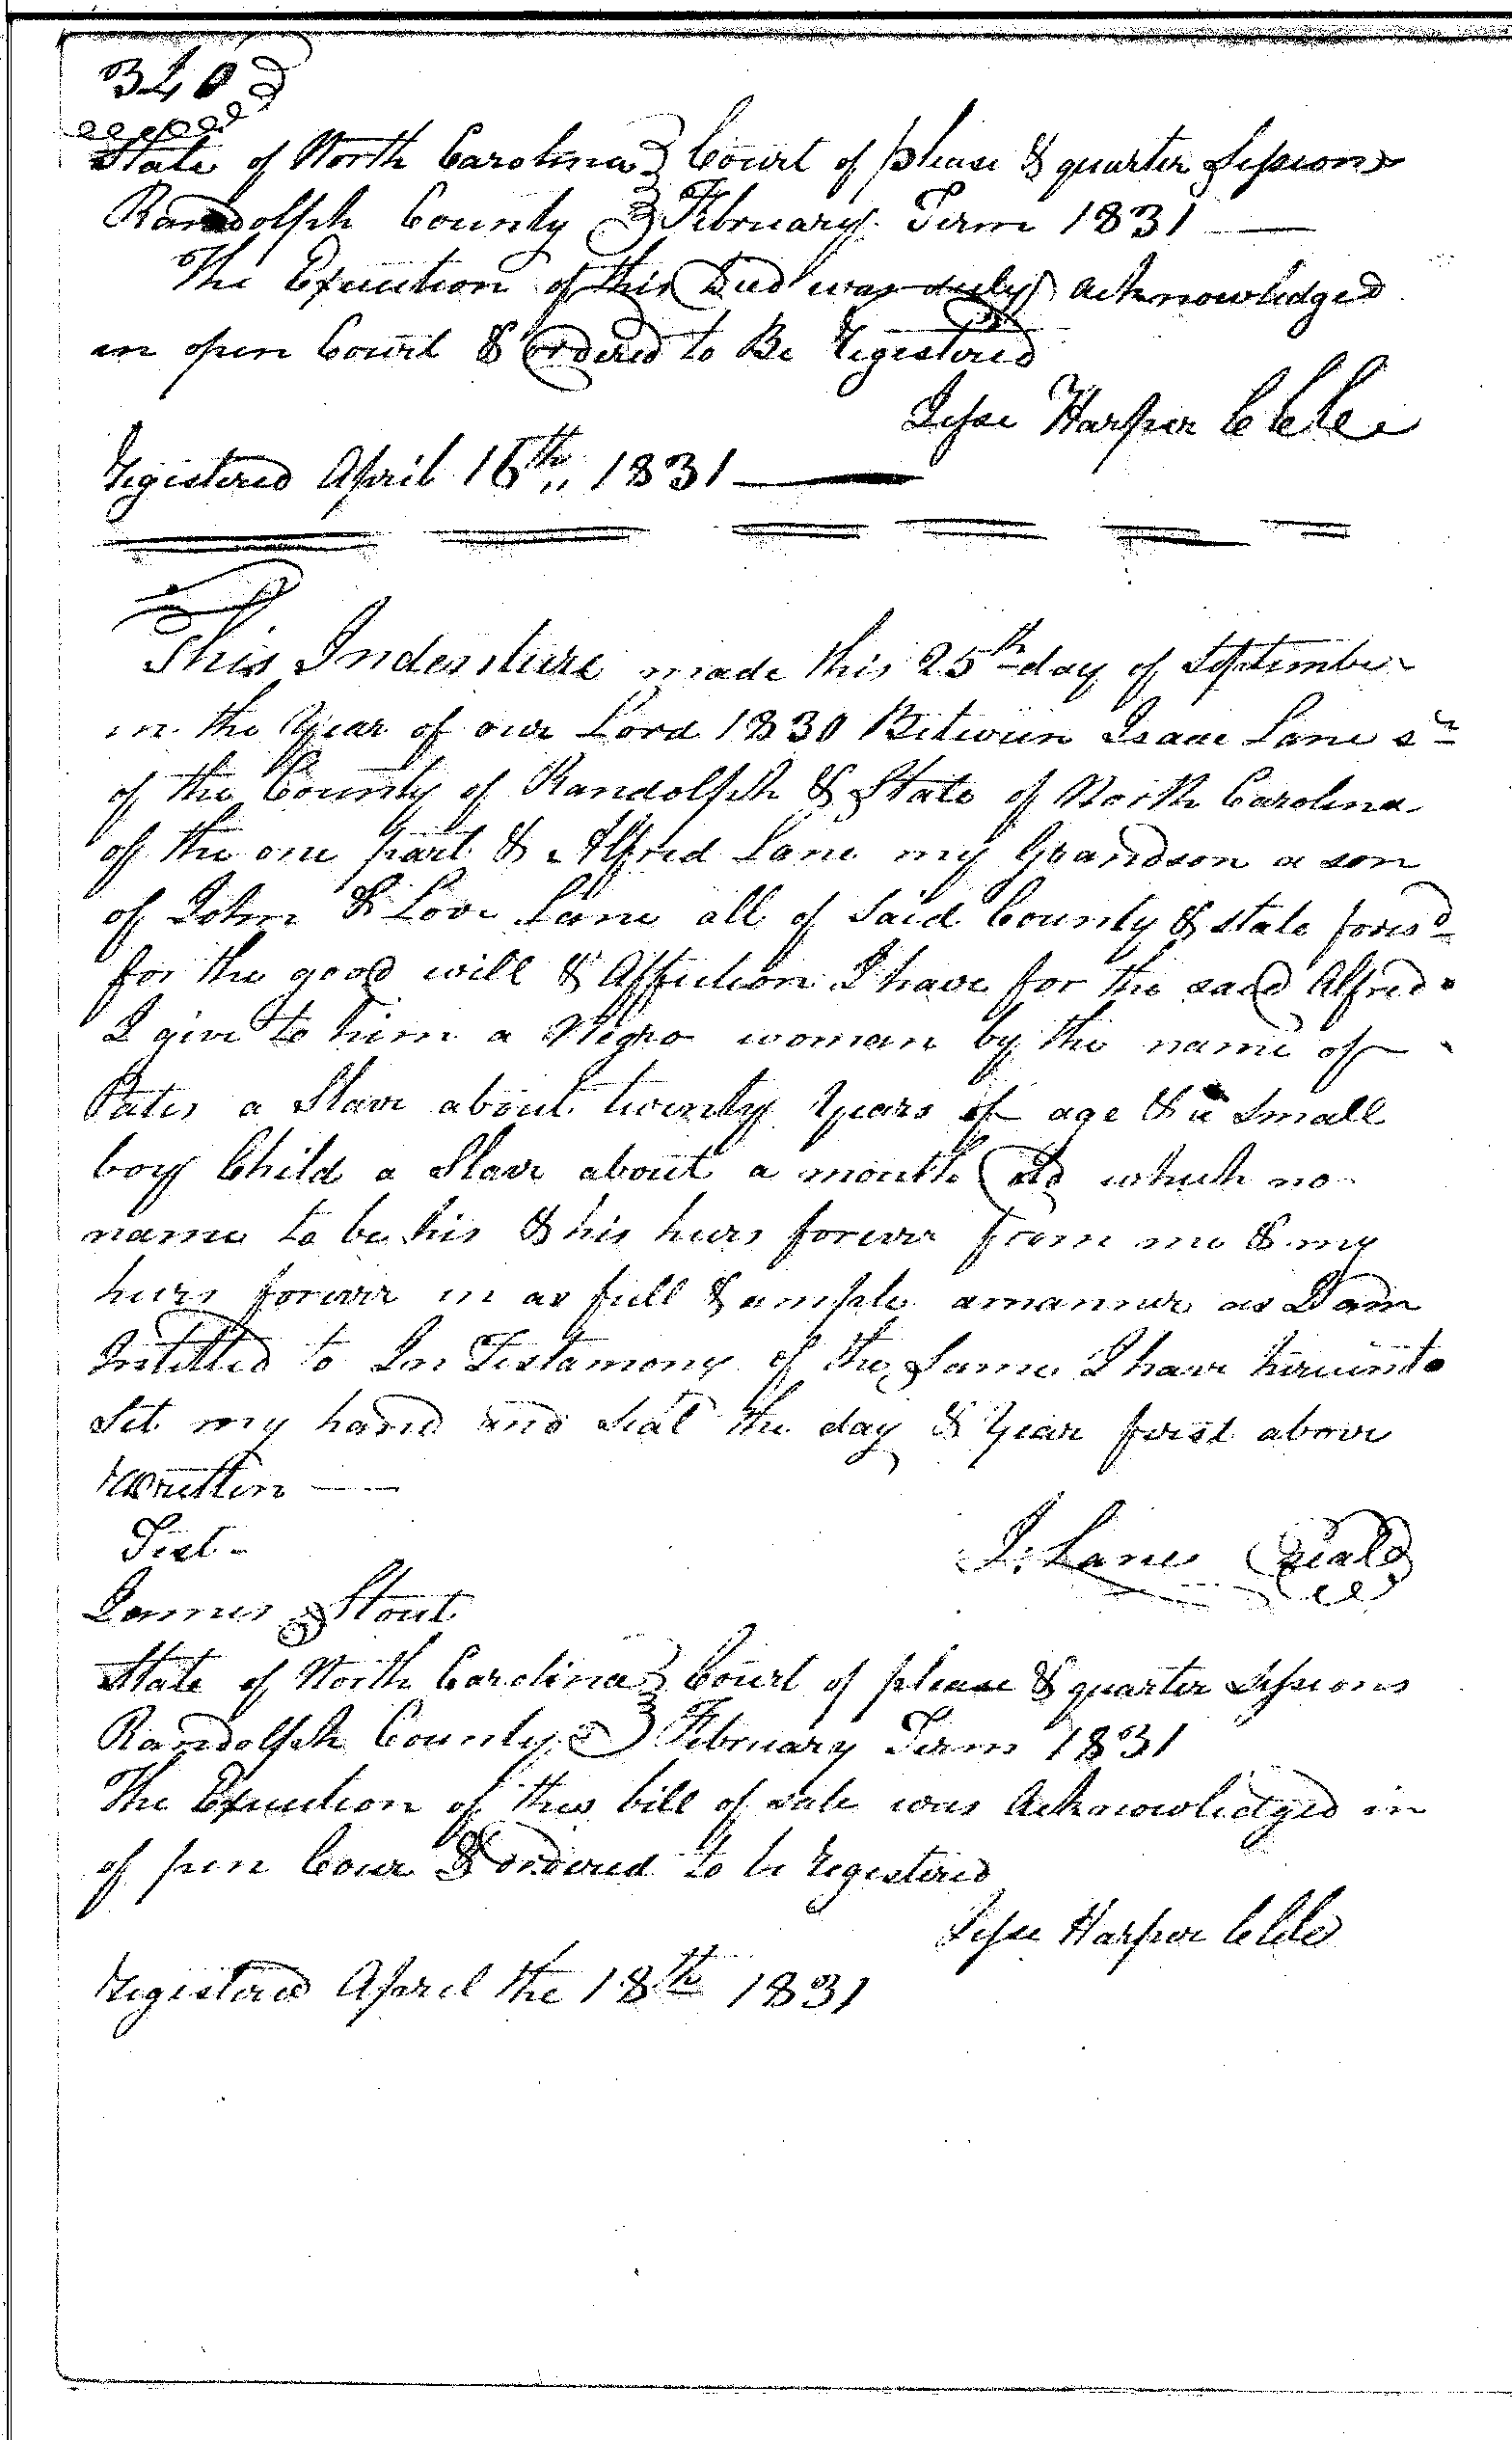 340
State of North Carolina } Court of please & quarter Sessions
Randolph County } February Term 1831
The Execution of this Deed was duly acknowledged
in open Court & ordered to Be Registered
Jesse Harper C C Ck
Registered April 16th 1831
This Indenture made this 25th day of September
in the Year of our Lord 1830 Between Isaac Lane sr
of the County of Randolph & State of North Carolina
of the one part & Alfred Lane my Grandson a son
of John & Love Lane all of said County & state foresd
for the good will & Affection I have for the said Alfred
I give to him a Negro woman by the name of
a Slave about twenty Years of age & a small
boy Child a Slave about a month old which no
name to be his & his heirs forever from me & my
heirs forever in as full & ample amanner as I am
Intitled to In Testamony of the Same I have hereunto
Set my hand and seal the day & Year first above
Written
Test
James Stout
I. Lane Seal
State of North Carolina } Court of please & quarter Sessions
Randolph County } February Term 1831
The Execution of this bill of sale was Acknowledged in
of pen Cour & ordered to be Registered
Jesse Harper C C Ck
Registered April the 18th 1831